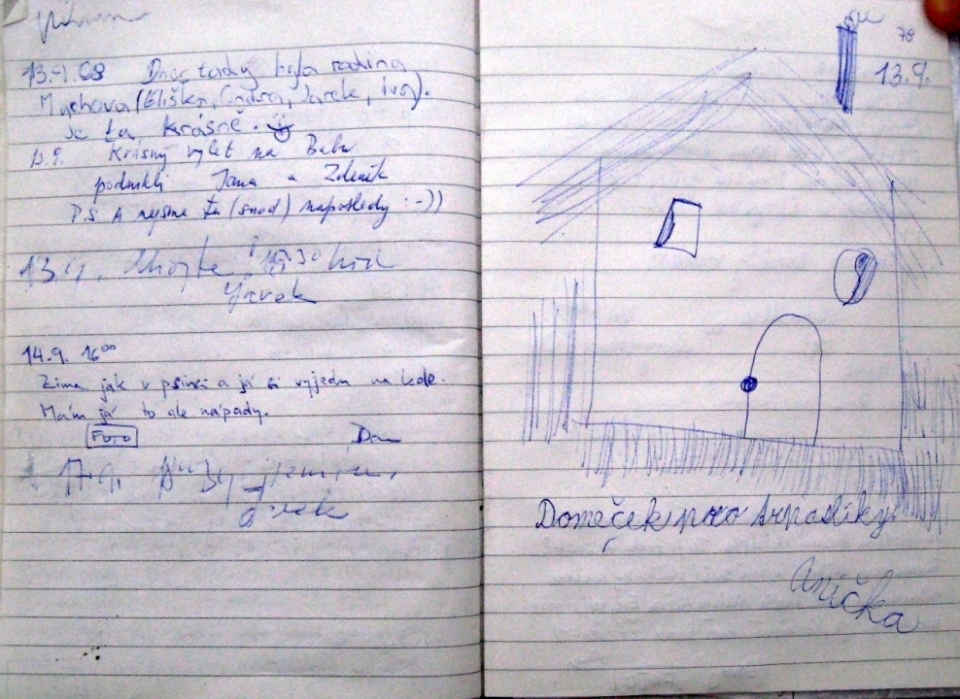 13.9.08 Dnes tady byla rodina
Mychova (Eliška, Ondra, Jarek, Iva).
Je tu krásně.
13.9. Krásný výlet na Babu
podnikli Jana a Zdeněk
P.S A nejsme tu (snad) naposledy :-))
13.9.
Jarek
14.9. 16⁰⁰
Zima jak v psinci a já si vyjedu na kole.
Mám já to ale nápady.
FOTO Dan
17.9.
Jarek
78
13.9.
Domeček pro trpaslíky.
Anička